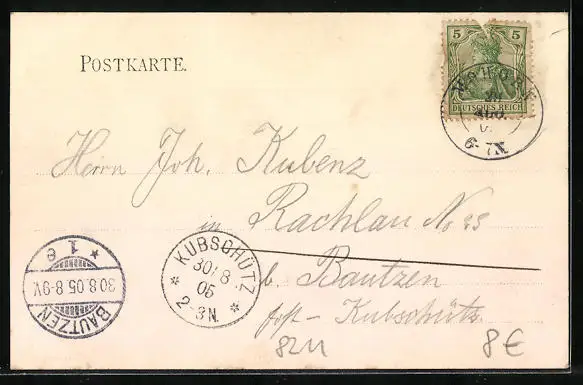 POSTKARTE.
5 5
DEUTSCHES REICH
AUG.
6-7N
Herrn Joh. Kubenz
in Rachlau No 23
b. Bautzen
post-Kubschütz
KUBSCHÜTZ
30/8
05
2-3N
* 1 e
30.8.05.8-9V.
BAUTZEN
8211
8€